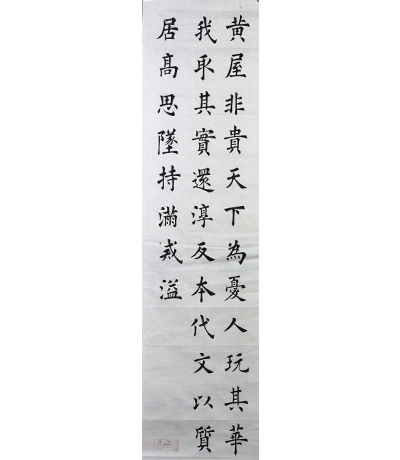 黄屋非貴天下為憂人玩其華
我取其實還淳反本代文以質
居高思墜持滿戒溢